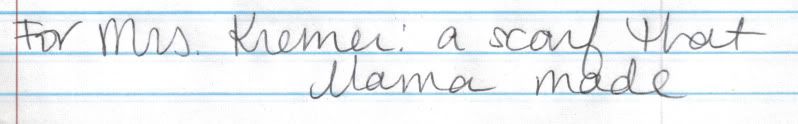 For Mrs. Kremer: a scarf that
Mama made